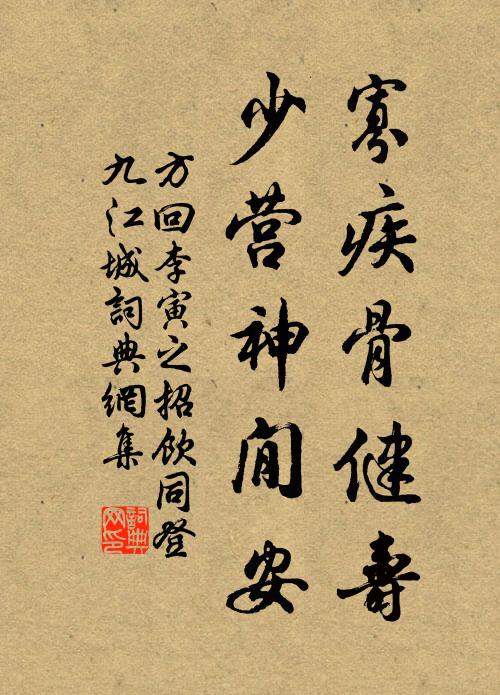 寡疾骨健壽
少营神閒安
方回李寅之招飲同登
九江城詞典網集
詞典
网印